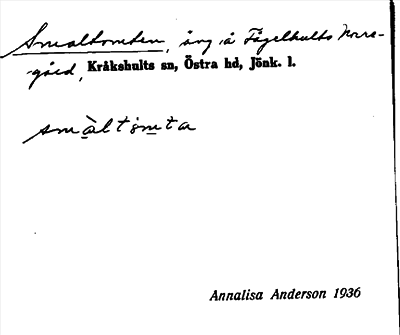 Smaltomten, äng å Fägelhults Norre-
gård, Kråkshults sn, Östra hd, Jönk. l.
smàltómta
Annalisa Anderson 1936